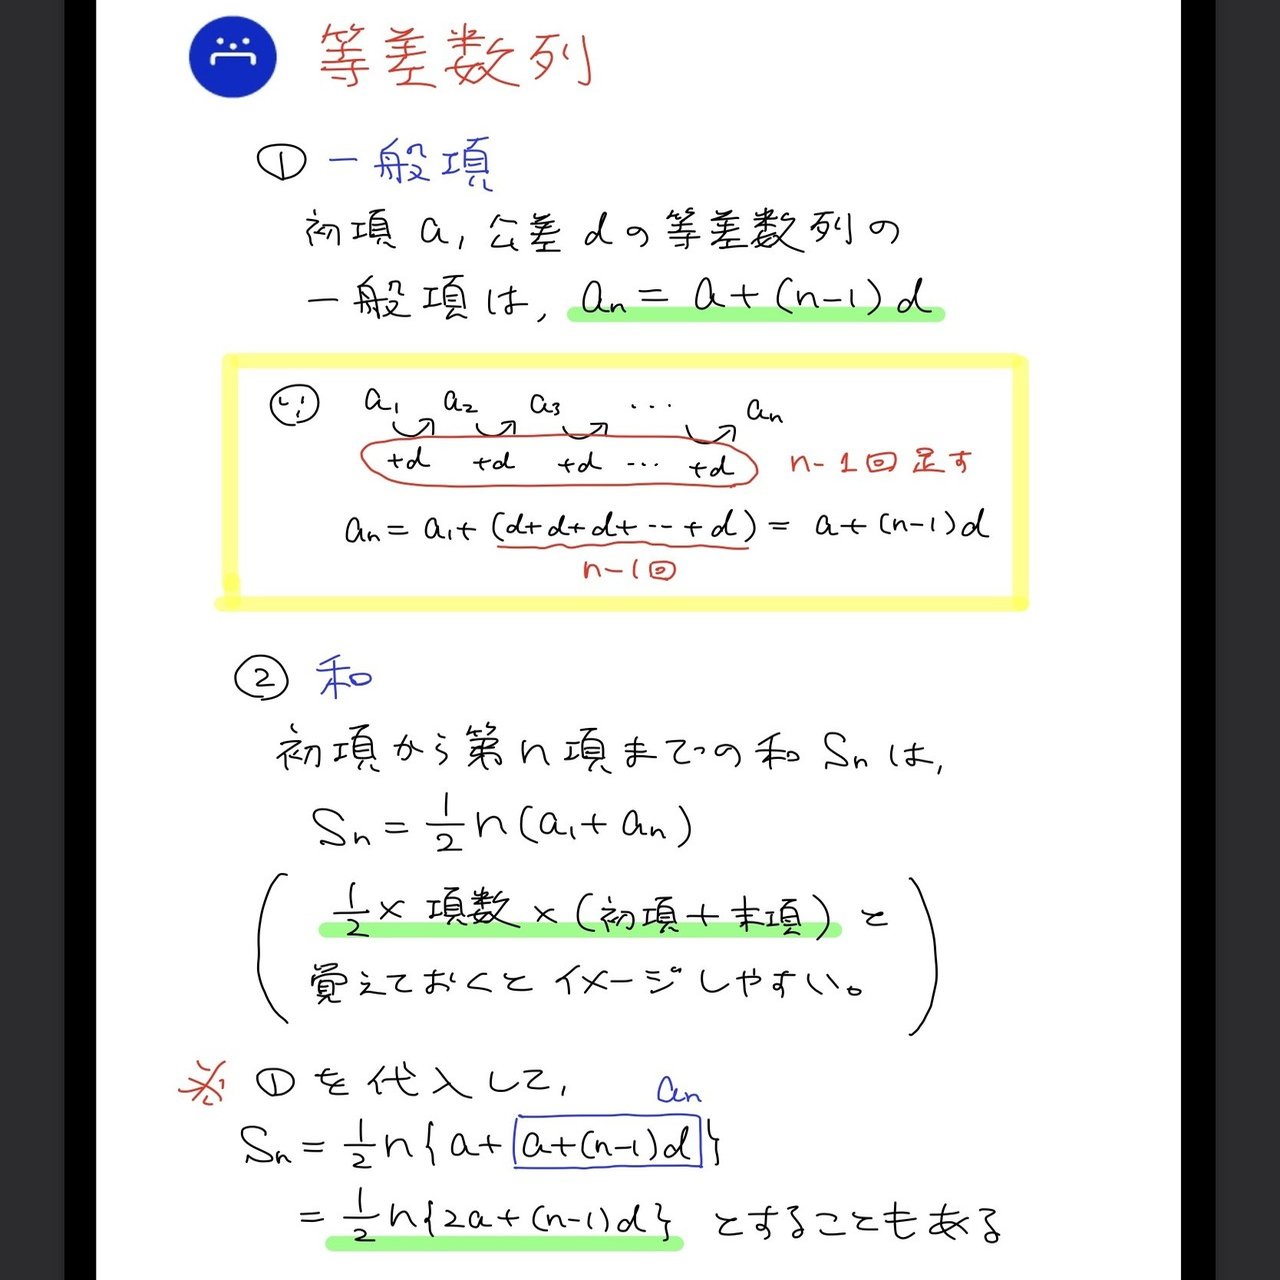 等差数列
① 一般項
初項 a, 公差 d の等差数列の
一般項は, an = a+(n-1)d
∵ a1 a2 a3 ... an
+d +d +d ... +d n-1回足す
an = a1+(d+d+d+...+d) = a+(n-1)d
n-1回
② 和
初項から第n項までの和 Sn は,
Sn = 1/2 n(a1+an)
(1/2 × 項数 × (初項+末項) と
覚えておくとイメージしやすい。)
※ ①を代入して,
an
Sn = 1/2 n{a+a+(n-1)d}
= 1/2 n{2a+(n-1)d} とすることもある